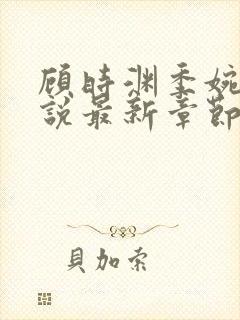 顧時渊季婉
說最新章節
貝加索